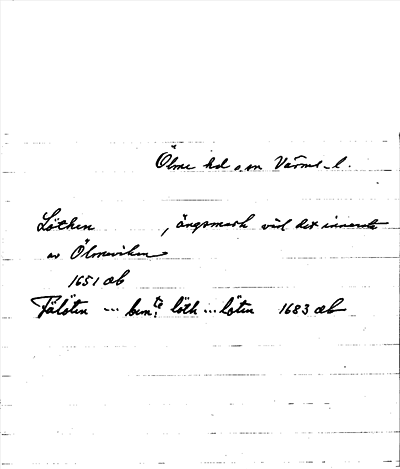 Ölme hd o sn Värml. l.
Löthen , ängsmark vid det innersta
av Ölmeviken
1651 ab
Fälöten ... bem:te löth ... löten 1683 ab